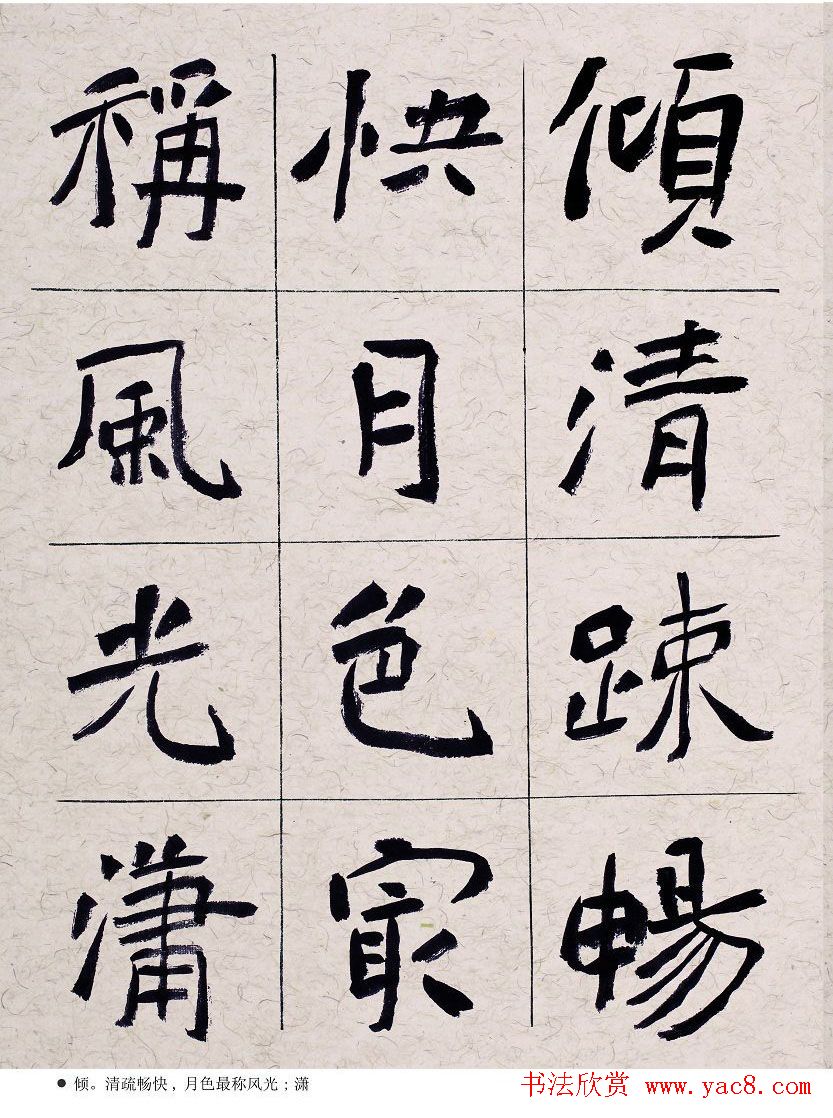 傾清踈暢
快月色㝡
稱風光潇
●倾。清疏畅快，月色最称风光；潇
书法欣赏 www.yac8.com